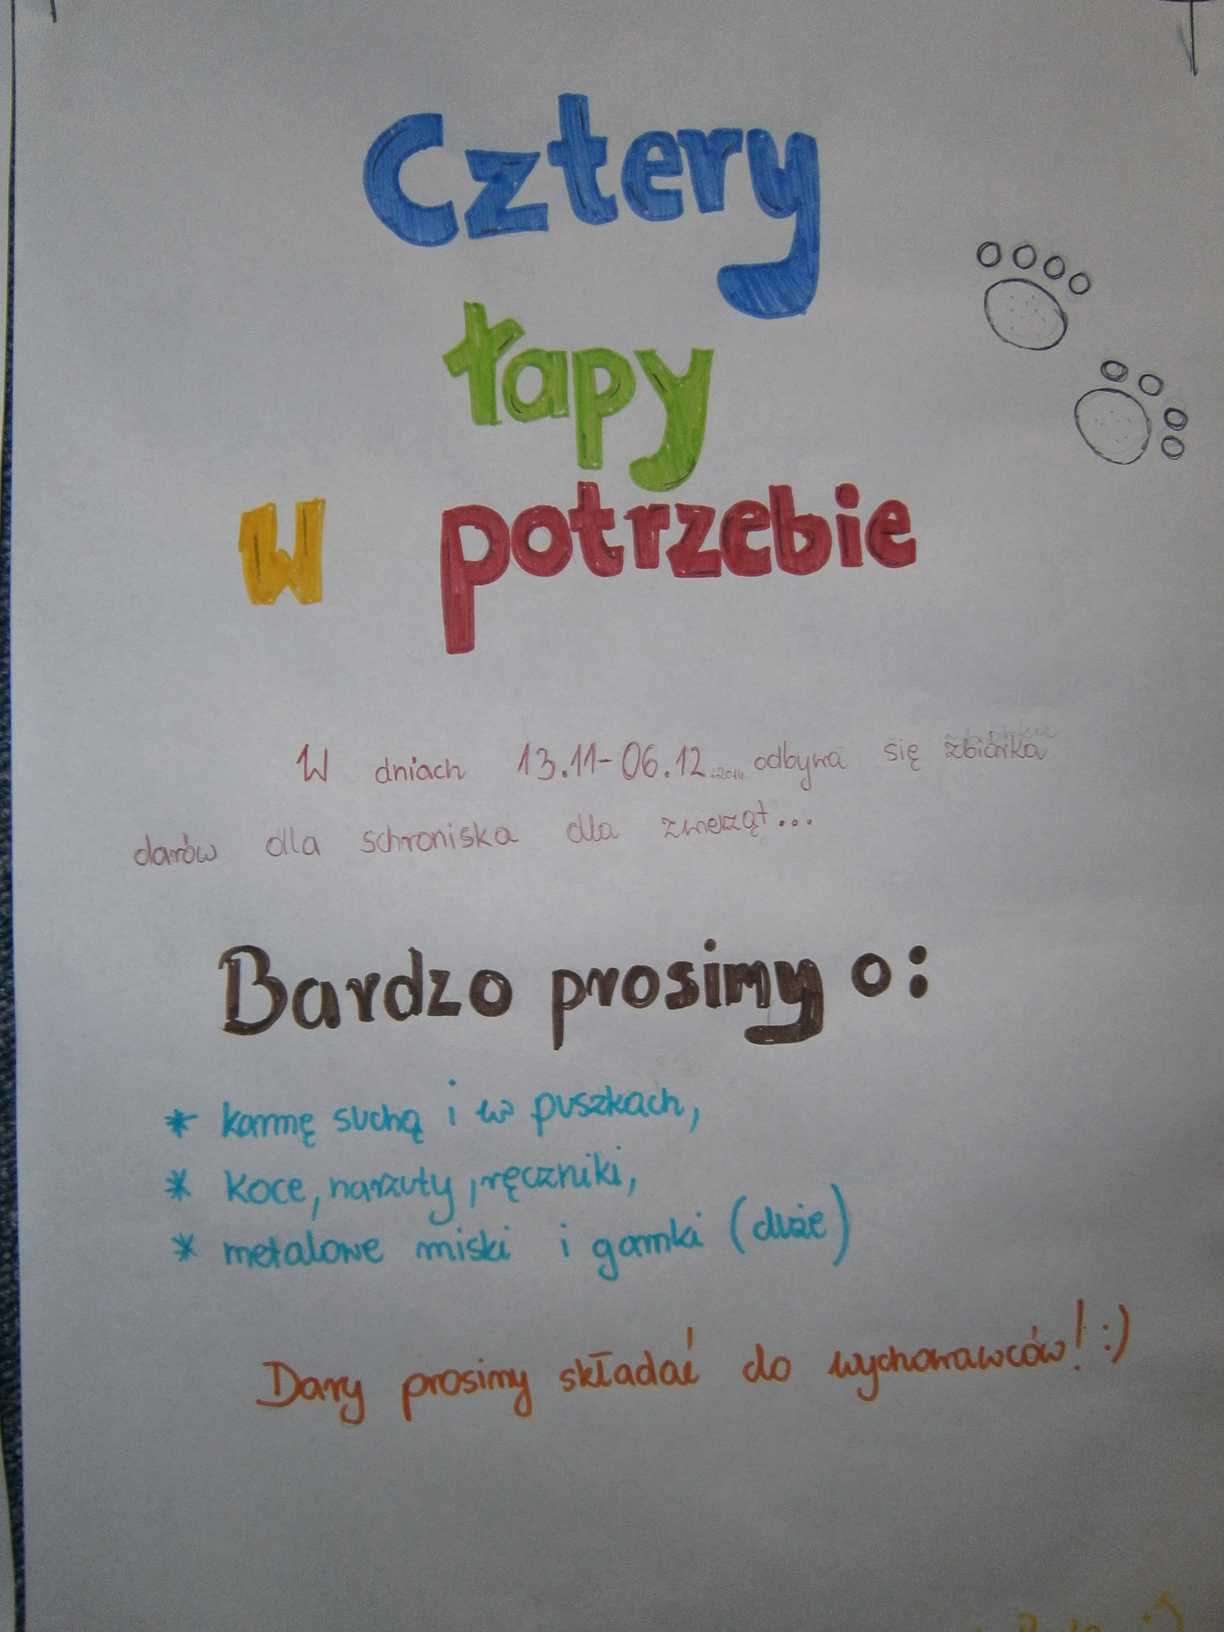 Cztery
łapy
w potrzebie
W dniach 13.11-06.12.2014 odbywa się zbiórka
darów dla schroniska dla zwierząt...
Bardzo prosimy o:
* karmę suchą i w puszkach,
* koce, narzuty, ręczniki,
* metalowe miski i garnki (duże)
Dary prosimy składać do wychowawców! :)